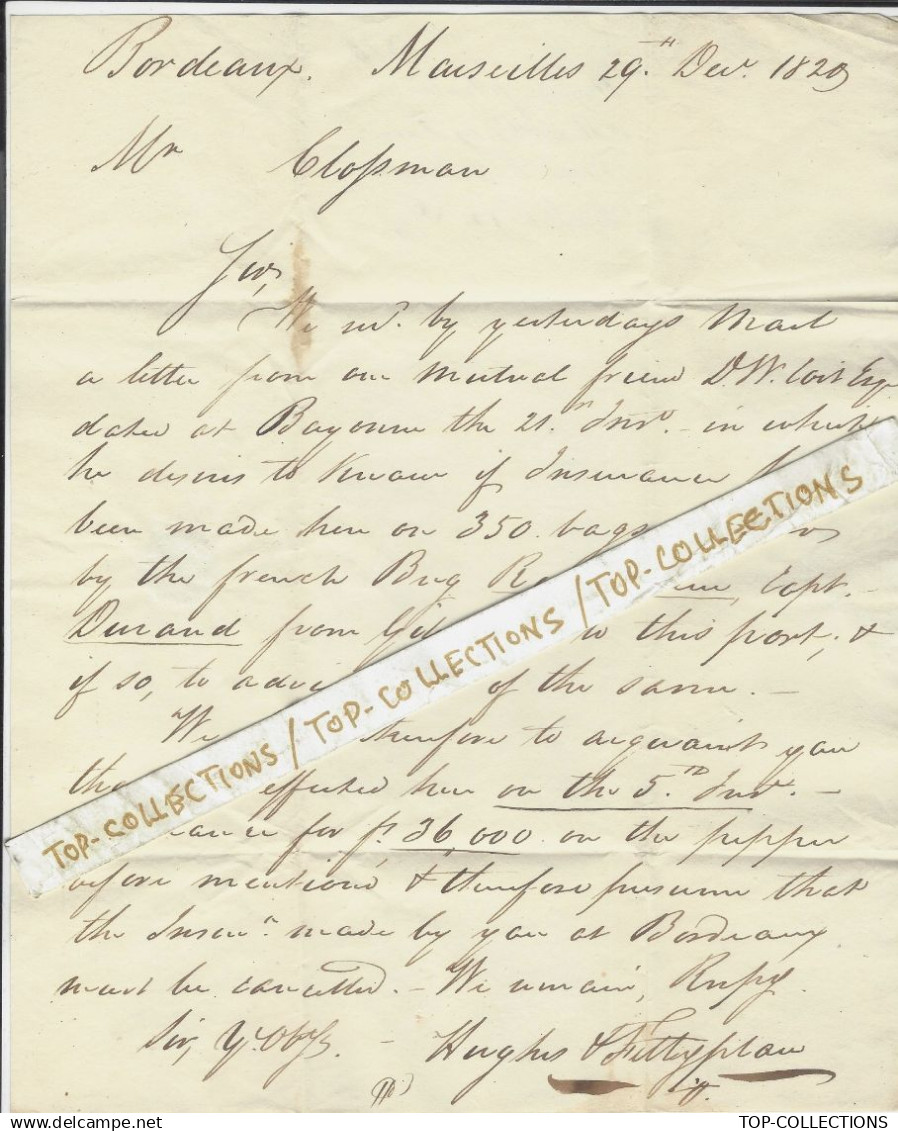 Bordeaux. Marseilles 29th Decr. 1820
Mr Clossman
Sir,
We recd. by yesterdays Mail
a letter from our mutual friend D. W. Coit Esqr
dated at Bayonne the 21st Inst. - in which
he desires to know if Insurance
been made here on 350 bags
by the french Brig, Capt.
Durand from to this port, &
if so, to of the same. -
We therefore to acquaint you
effected here on the 5th Inst. -
for fs. 36,000 on the pepper
before mentioned & therefore presume that
the Insurce. made by you at Bordeaux
must be cancelled. - We remain, Respy.
Sir, Yr. Obt. Sts. - Hughes & Fettyplace
TOP-COLLECTIONS / TOP-COLLECTIONS / TOP-COLLECTIONS
TOP-COLLECTIONS
www.delcampe.net